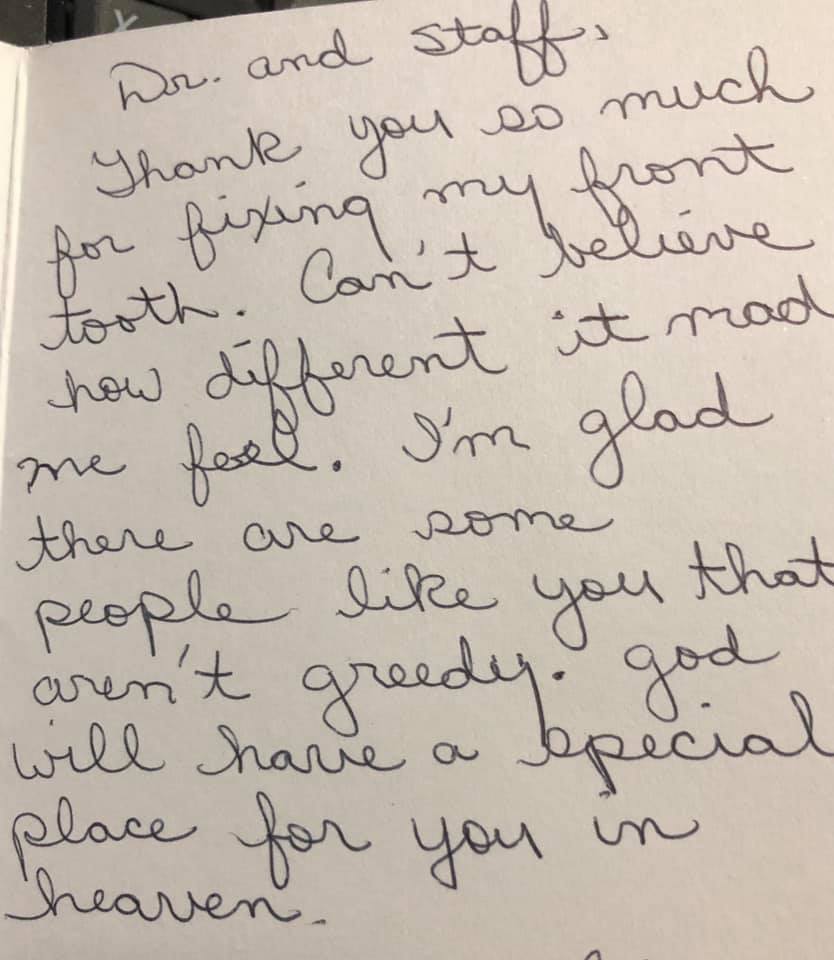 Dr. and staff,
Thank you so much
for fixing my front
tooth. Can't believe
how different it mad
me feel. I'm glad
there are some
people like you that
aren't greedy. god
will have a special
place for you in
heaven.